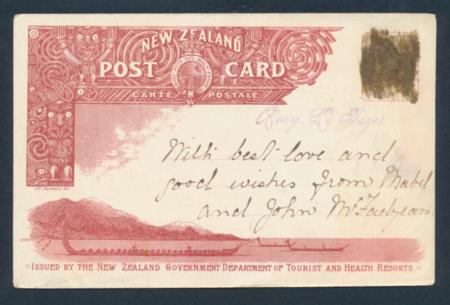 NEW ZEALAND
POST CARD
CARTE POSTALE
With best love and
good wishes from Mabel
and John McFadyean.
ISSUED BY THE NEW ZEALAND GOVERNMENT DEPARTMENT OF TOURIST AND HEALTH RESORTS